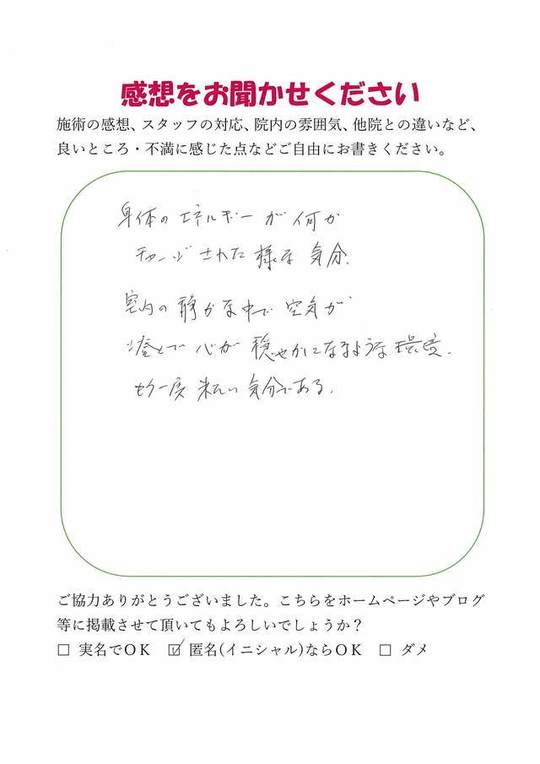 感想をお聞かせください
施術の感想、スタッフの対応、院内の雰囲気、他院との違いなど、
良いところ・不満に感じた点などご自由にお書きください。
身体のエネルギーが何か
チャージされた様な気分.
室内の静かな中で空気が
心が穏やかになるような環境.
もう一度来たい気分である.
ご協力ありがとうございました。こちらをホームページやブログ
等に掲載させて頂いてもよろしいでしょうか？
□ 実名でOK ☑ 匿名(イニシャル)ならOK □ ダメ